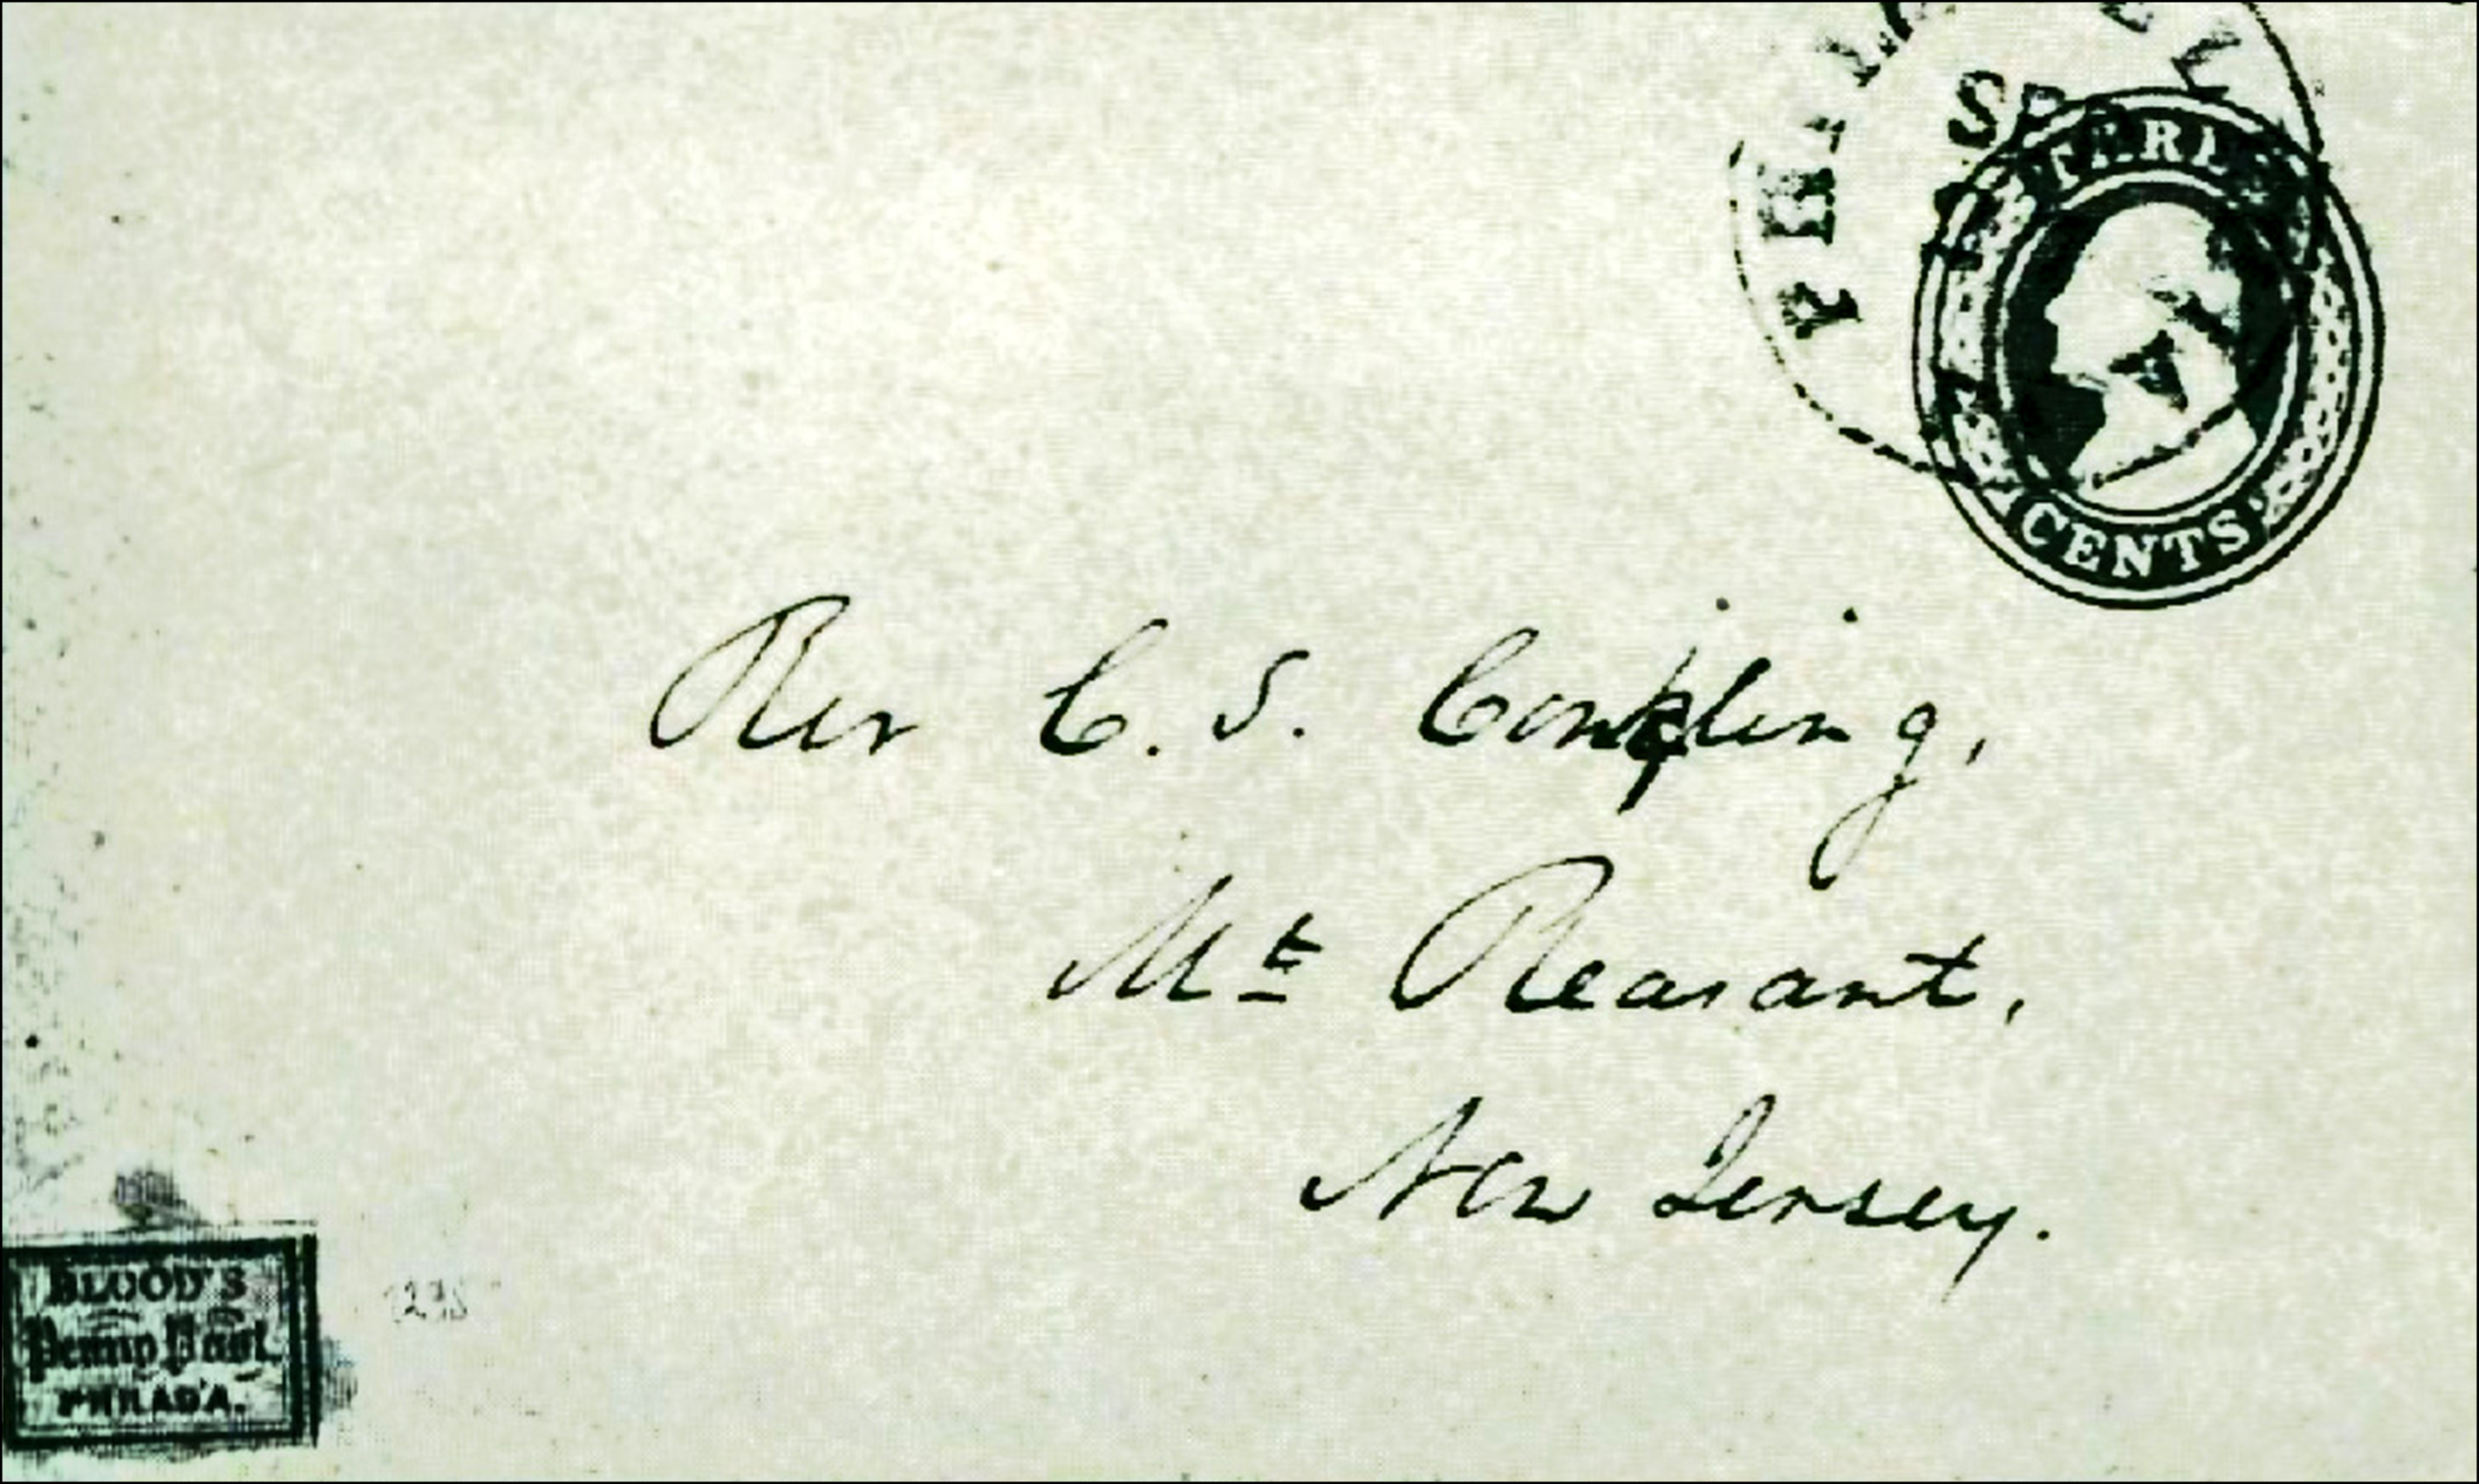 CENTS
Rev C. S. Conkling,
Mt Pleasant,
New Jersey.
BLOOD'S
Penny Post
PHILAD'A.